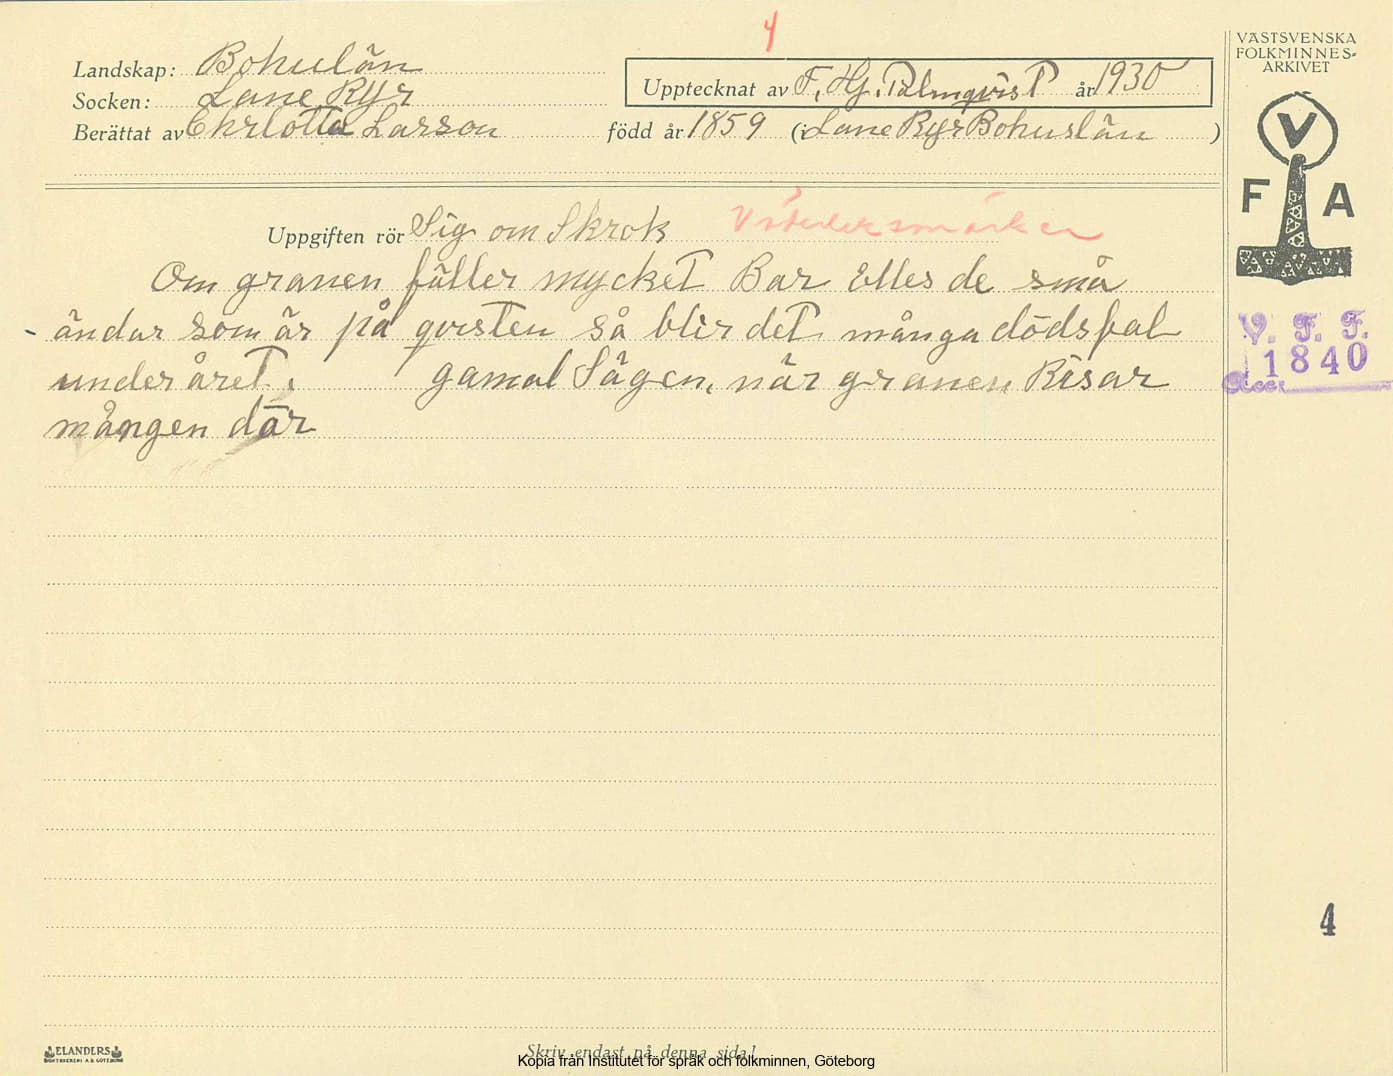 4
Landskap: Bohuslän
Socken: Lane Ryr
Berättat av Chrlotta Larson född år 1859 (i Lane Ryr Bohuslän )
Upptecknat av F. Hj. Palmqvist år 1930
VÄSTSVENSKA
FOLKMINNES-
ARKIVET
V
F A
Uppgiften rör Sig om Skrok
Om granen fäller mycket Bar Elles de små
ändar som är på qvisten så blir det många dödsfal
under året. gamal Sägen, når granen Risar
mången dör
V. F. F.
1840
Acc.
4
ELANDERS
BOKTRYCKERI A.B. GÖTEBORG
Skriv endast på denna sida!
Kopia från Institutet för språk och folkminnen, Göteborg